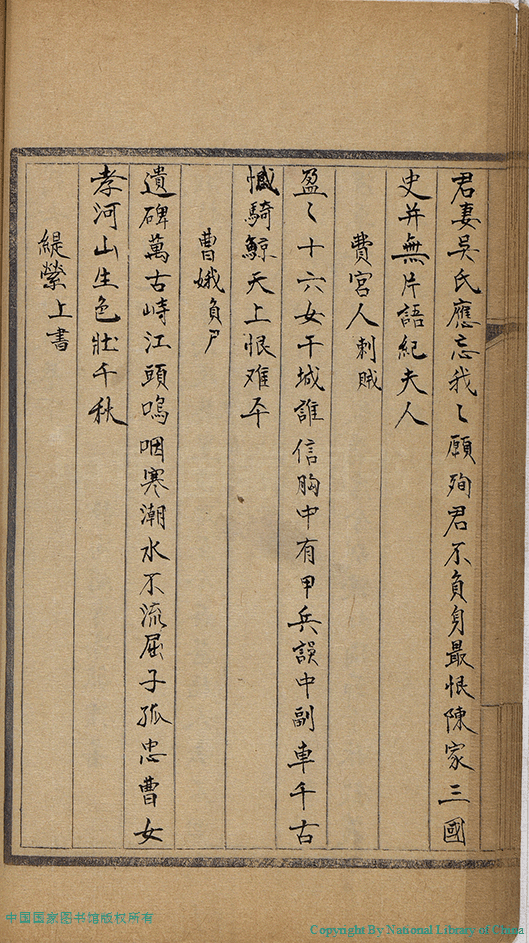 君妻吳氏應忘我〻願殉君不負身最恨陳家三國
史并無片語紀夫人
費宮人刺賊
盈〻十六女干城誰信胸中有甲兵誤中副車千古
憾騎鯨天上恨难平
曹娥負尸
遺碑萬古峙江頭嗚咽寒潮水不流屈子孤忠曹女
孝河山生色壯千秋
緹縈上書
中国国家图书馆版权所有
Copyright By National Library of China